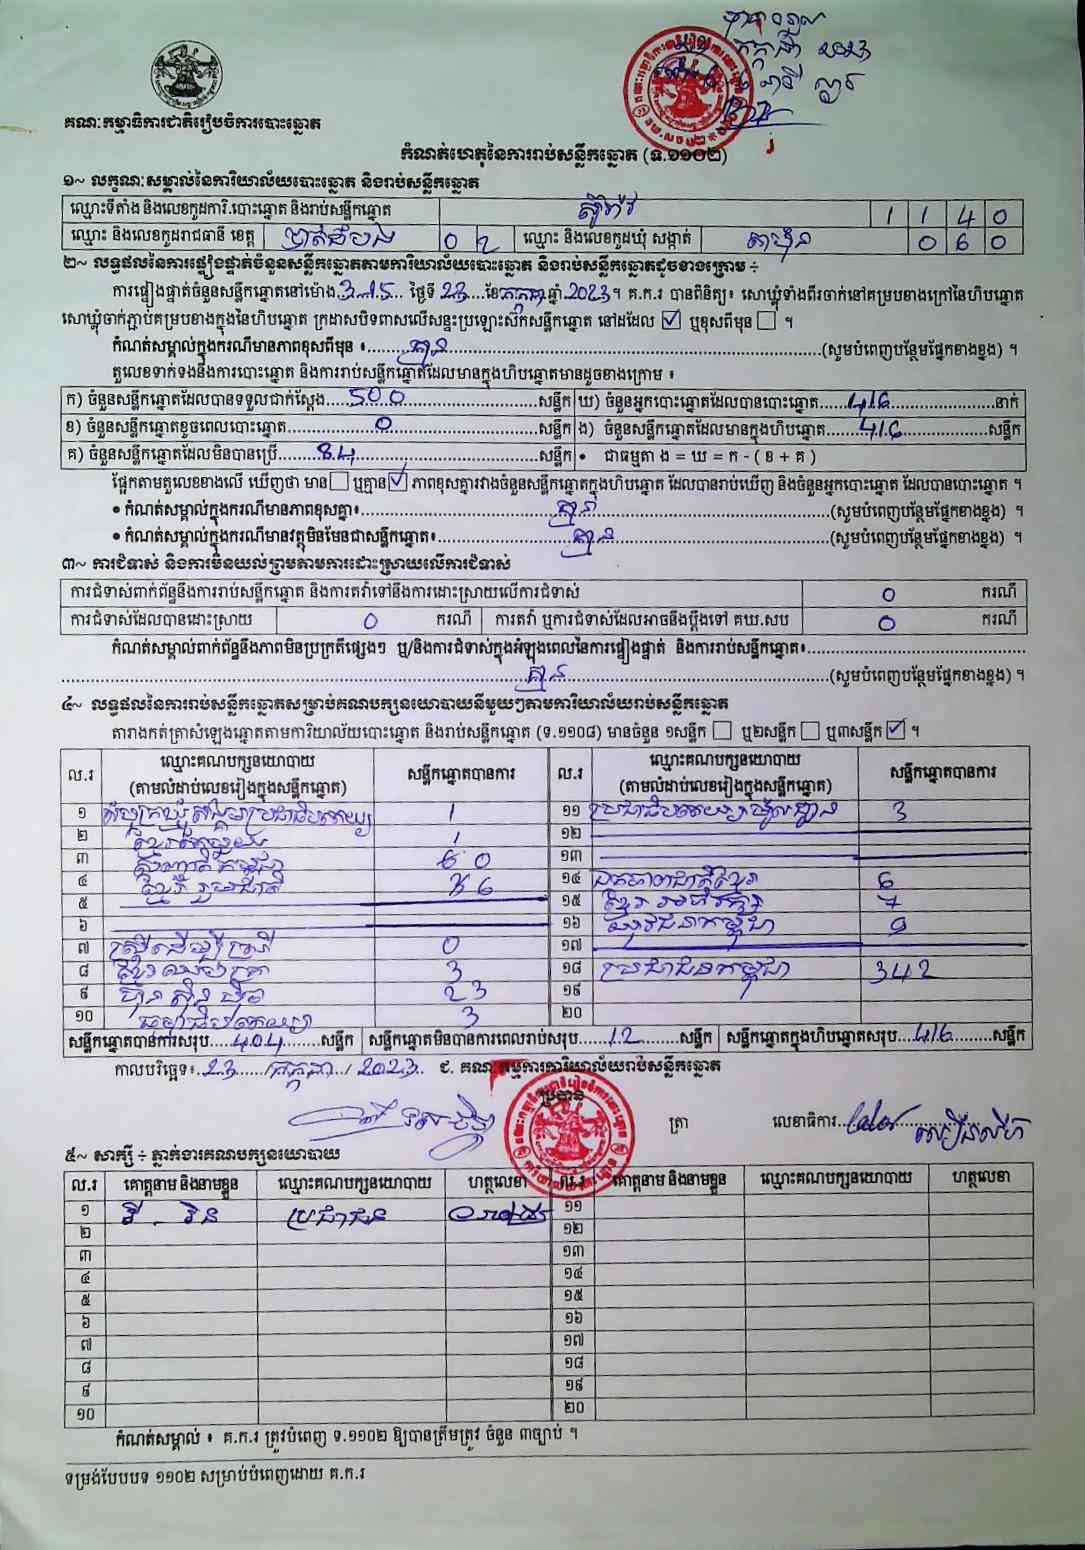 គណៈកម្មាធិការជាតិរៀបចំការបោះឆ្នោត
កំណត់ហេតុនៃការរាប់សន្លឹកឆ្នោត (ទ.១១០២)
១~ លក្ខណៈសម្គាល់នៃការិយាល័យបោះឆ្នោត និងរាប់សន្លឹកឆ្នោត
ឈ្មោះទីតាំង និងលេខកូដការិ.បោះឆ្នោត និងរាប់សន្លឹកឆ្នោត 1 1 4 0
ឈ្មោះ និងលេខកូដរាជធានី ខេត្ត បាត់ដំបង 0 2 ឈ្មោះ និងលេខកូដឃុំ សង្កាត់ 0 6 0
២~ លទ្ធផលនៃការផ្ទៀងផ្ទាត់ចំនួនសន្លឹកឆ្នោតតាមការិយាល័យបោះឆ្នោត និងរាប់សន្លឹកឆ្នោតដូចខាងក្រោម ÷
ការផ្ទៀងផ្ទាត់ចំនួនសន្លឹកឆ្នោតនៅម៉ោង 3:15 ថ្ងៃទី 23 ខែ កក្កដា ឆ្នាំ 2023 ។ គ.ក.រ បានពិនិត្យ៖ សោឃ្លុំទាំងពីរចាក់នៅគម្របខាងក្រៅនៃហិបឆ្នោត
សោឃ្លុំចាក់ភ្ជាប់គម្របខាងក្នុងនៃហិបឆ្នោត ក្រដាសបិទពាសលើសន្ទះប្រឡោះសៀតសន្លឹកឆ្នោត នៅដដែល ☑ ឬខុសពីមុន ☐ ។
កំណត់សម្គាល់ក្នុងករណីមានភាពខុសពីមុន ៖ គ្មាន (សូមបំពេញបន្ថែមផ្នែកខាងខ្នង) ។
តួលេខទាក់ទងនឹងការបោះឆ្នោត និងការរាប់សន្លឹកឆ្នោតដែលមានក្នុងហិបឆ្នោតមានដូចខាងក្រោម ៖
ក) ចំនួនសន្លឹកឆ្នោតដែលបានទទួលជាក់ស្តែង 500 សន្លឹក ឃ) ចំនួនអ្នកបោះឆ្នោតដែលបានបោះឆ្នោត 416 នាក់
ខ) ចំនួនសន្លឹកឆ្នោតខូចពេលបោះឆ្នោត 0 សន្លឹក ង) ចំនួនសន្លឹកឆ្នោតដែលមានក្នុងហិបឆ្នោត 416 សន្លឹក
គ) ចំនួនសន្លឹកឆ្នោតដែលមិនបានប្រើ 84 សន្លឹក • ជាធម្មតា ង = ឃ = ក - ( ខ + គ )
ផ្អែកតាមតួលេខខាងលើ ឃើញថា មាន ☐ ឬគ្មាន ☑ ភាពខុសគ្នារវាងចំនួនសន្លឹកឆ្នោតក្នុងហិបឆ្នោត ដែលបានរាប់ឃើញ និងចំនួនអ្នកបោះឆ្នោត ដែលបានបោះឆ្នោត ។
• កំណត់សម្គាល់ក្នុងករណីមានភាពខុសគ្នា៖ គ្មាន (សូមបំពេញបន្ថែមផ្នែកខាងខ្នង) ។
• កំណត់សម្គាល់ក្នុងករណីមានវត្ថុមិនមែនជាសន្លឹកឆ្នោត៖ គ្មាន (សូមបំពេញបន្ថែមផ្នែកខាងខ្នង) ។
៣~ ការជំទាស់ និងការមិនយល់ព្រមតាមការដោះស្រាយលើការជំទាស់
ការជំទាស់ពាក់ព័ន្ធនឹងការរាប់សន្លឹកឆ្នោត និងការតវ៉ាទៅនឹងការដោះស្រាយលើការជំទាស់ 0 ករណី
ការជំទាស់ដែលបានដោះស្រាយ 0 ករណី ការតវ៉ា ឬការជំទាស់ដែលអាចនឹងប្តឹងទៅ គឃ.សប 0 ករណី
កំណត់សម្គាល់ពាក់ព័ន្ធនឹងភាពមិនប្រក្រតីផ្សេងៗ ឬ/និងការជំទាស់ក្នុងអំឡុងពេលនៃការផ្ទៀងផ្ទាត់ និងការរាប់សន្លឹកឆ្នោត៖
គ្មាន (សូមបំពេញបន្ថែមផ្នែកខាងខ្នង) ។
៤~ លទ្ធផលនៃការរាប់សន្លឹកឆ្នោតសម្រាប់គណបក្សនយោបាយនីមួយៗតាមការិយាល័យរាប់សន្លឹកឆ្នោត
តារាងកត់ត្រាសំឡេងឆ្នោតតាមការិយាល័យបោះឆ្នោត និងរាប់សន្លឹកឆ្នោត (ទ.១១០៨) មានចំនួន ១សន្លឹក ☐ ឬ២សន្លឹក ☐ ឬ៣សន្លឹក ☑ ។
ល.រ ឈ្មោះគណបក្សនយោបាយ (តាមលំដាប់លេខរៀងក្នុងសន្លឹកឆ្នោត) សន្លឹកឆ្នោតបានការ ល.រ ឈ្មោះគណបក្សនយោបាយ (តាមលំដាប់លេខរៀងក្នុងសន្លឹកឆ្នោត) សន្លឹកឆ្នោតបានការ
១ សំបុកឃ្មុំសង្គមប្រជាធិបតេយ្យ 1 ១១ 3
២ 1 ១២
៣ ១៣
៤ ខ្មែររួបរួមជាតិ ១៤ ឯកភាពជាតិខ្មែរ 6
៥ ១៥ 7
៦ ១៦ យុវជនកម្ពុជា 9
៧ ស្ត្រីដើម្បីស្ត្រី 0 ១៧
៨ 3 ១៨ ប្រជាជនកម្ពុជា 342
៩ ហ៊្វុនស៊ិនប៉ិច 23 ១៩
១០ ធម្មាធិបតេយ្យ 3 ២០
សន្លឹកឆ្នោតបានការសរុប 404 សន្លឹក សន្លឹកឆ្នោតមិនបានការពេលរាប់សរុប 12 សន្លឹក សន្លឹកឆ្នោតក្នុងហិបឆ្នោតសរុប 416 សន្លឹក
កាលបរិច្ឆេទ៖ 23 / កក្កដា / 2023 ជ. គណៈកម្មការការិយាល័យរាប់សន្លឹកឆ្នោត
ប្រធាន
ត្រា លេខាធិការ
៥~ សាក្សី ÷ ភ្នាក់ងារគណបក្សនយោបាយ
ល.រ គោត្តនាម និងនាមខ្លួន ឈ្មោះគណបក្សនយោបាយ ហត្ថលេខា ល.រ គោត្តនាម និងនាមខ្លួន ឈ្មោះគណបក្សនយោបាយ ហត្ថលេខា
១ ប្រជាជន ១១
២ ១២
៣ ១៣
៤ ១៤
៥ ១៥
៦ ១៦
៧ ១៧
៨ ១៨
៩ ១៩
១០ ២០
កំណត់សម្គាល់ ៖ គ.ក.រ ត្រូវបំពេញ ទ.១១០២ ឱ្យបានត្រឹមត្រូវ ចំនួន ៣ច្បាប់ ។
ទម្រង់បែបបទ ១១០២ សម្រាប់បំពេញដោយ គ.ក.រ